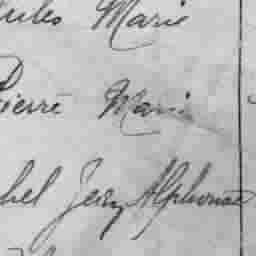 Jules Marie
Pierre Marie
hel Jean Alphonse